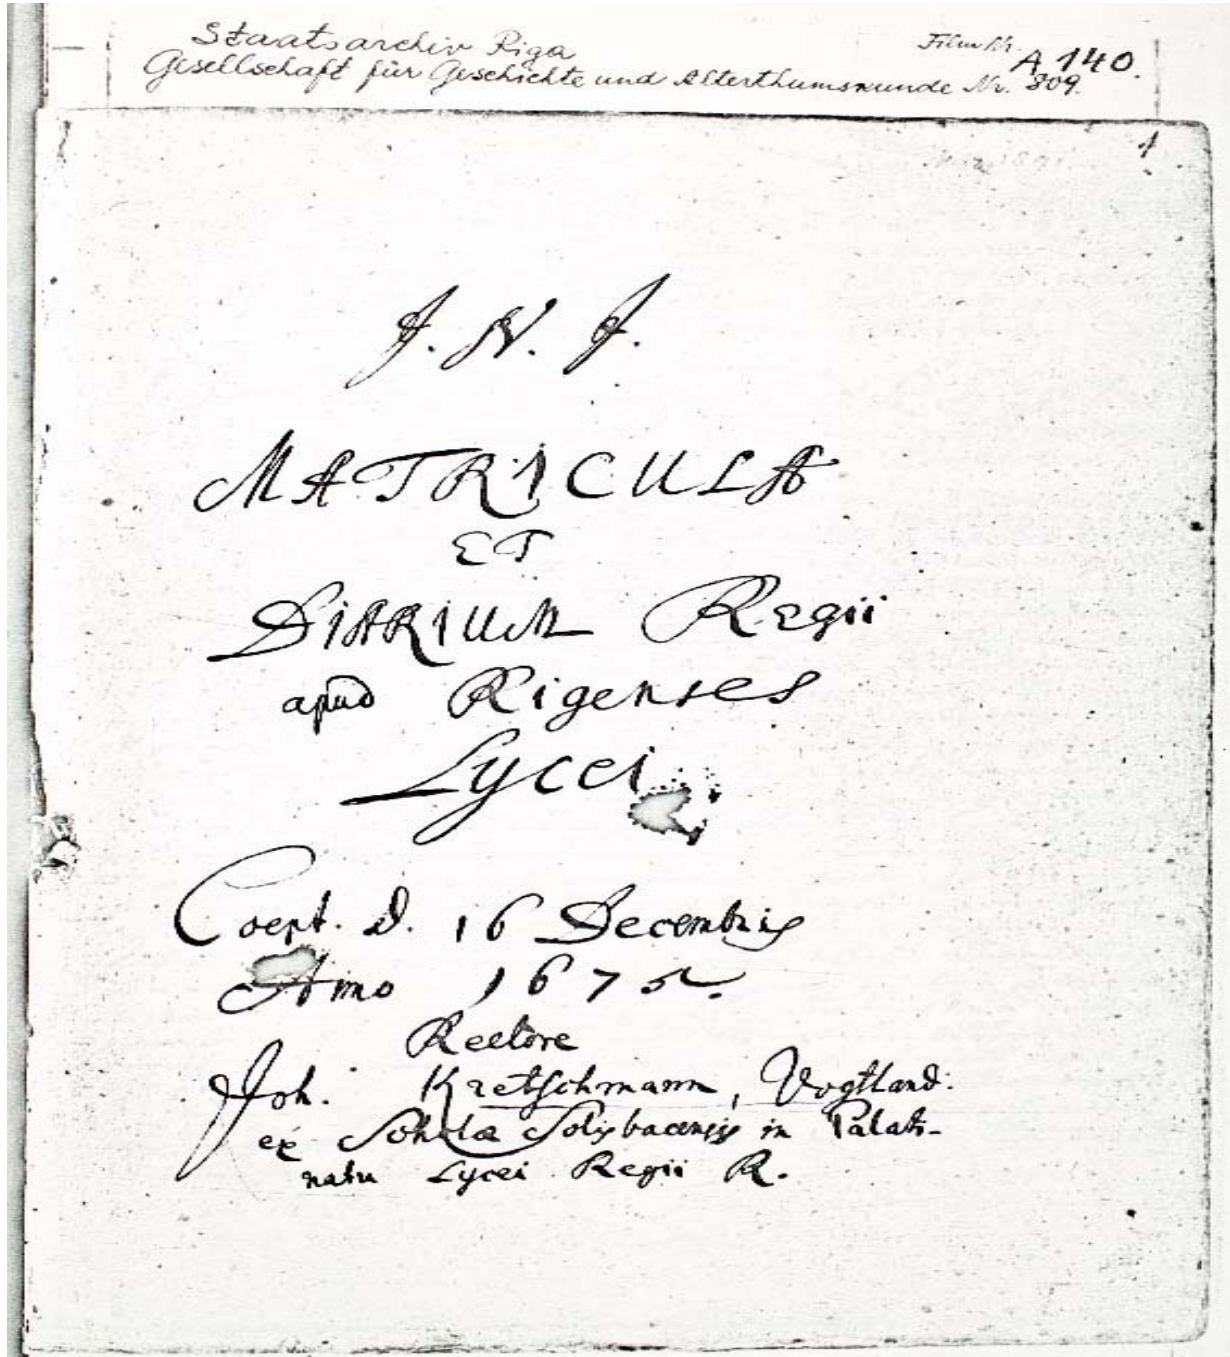 Staatsarchiv Riga
Film Nr. A 140.
Gesellschaft für Geschichte und Alterthumskunde Nr. 809.
1
J. N. J.
MATRICULA
ET
DIARIUM Regii
apud Rigenses
Lycei
Coept. d. 16 Decembris
Anno 1675.
Rectore
Joh. Kretschmann, Vogtland.
ex Schola Solisbacensis in Palati-
natu Lycei Regii R.